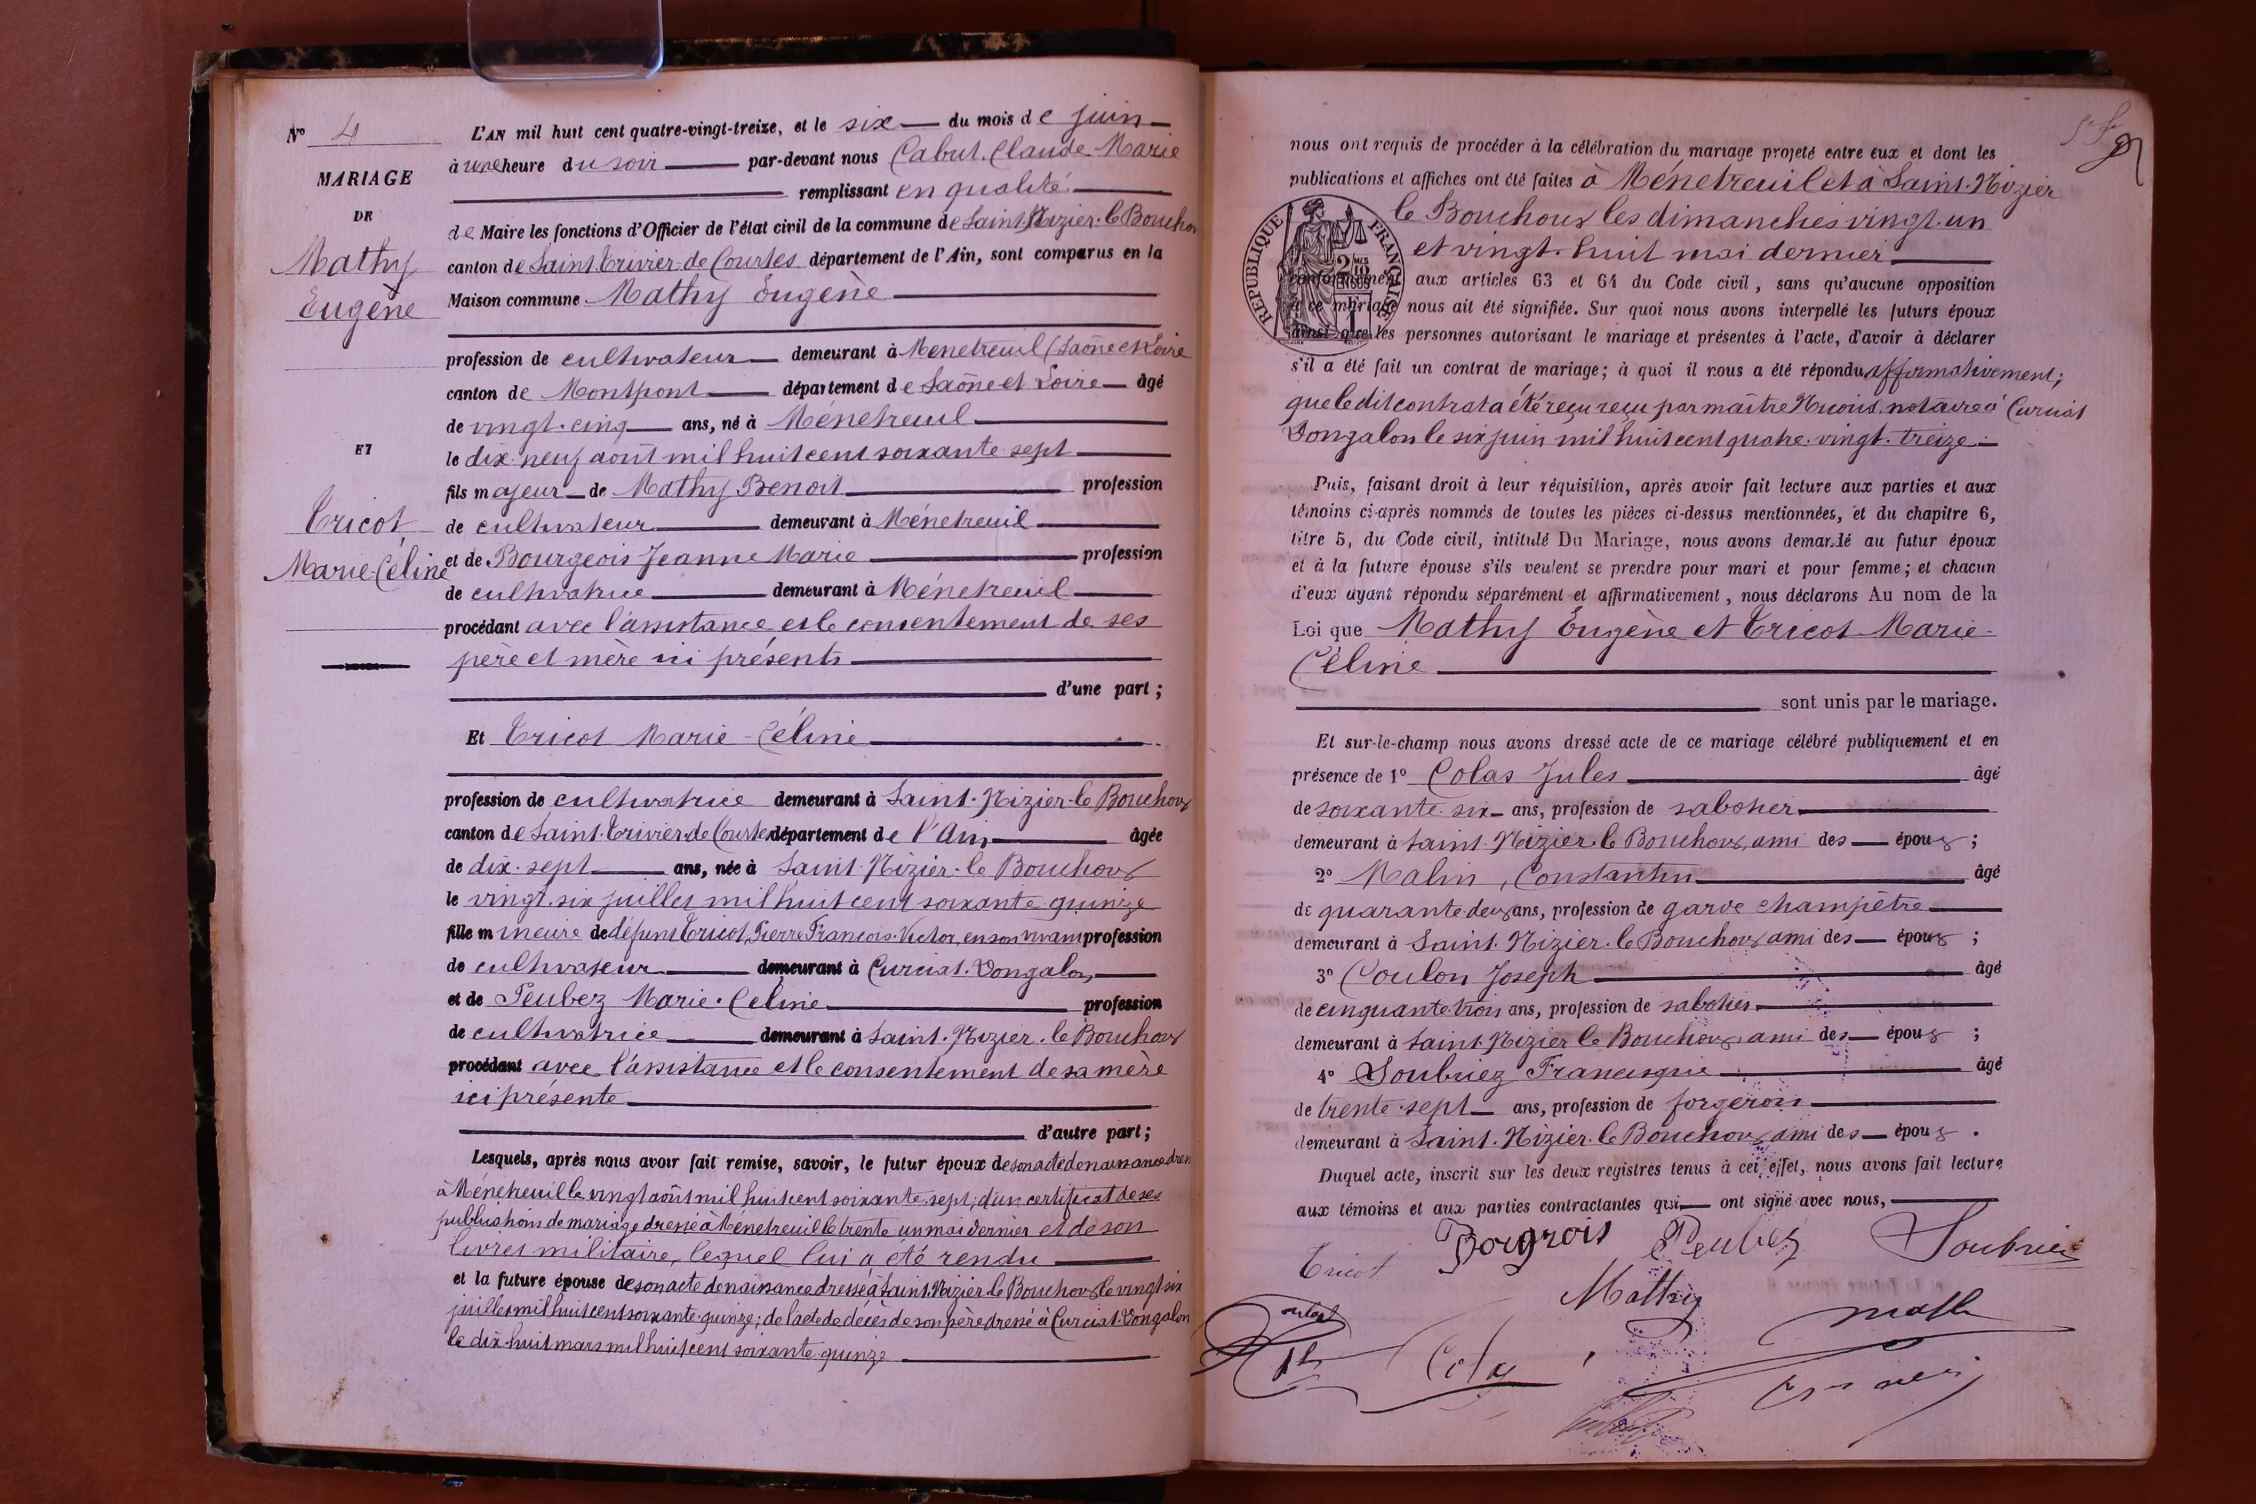 N° 4
MARIAGE
DE
Mathy
Eugène
ET
Tricot
Marie-Céline
L'AN mil huit cent quatre-vingt-treize, et le six du mois de juin
à une heure du soir par-devant nous Cabut Claude Marie
remplissant en qualité
de Maire les fonctions d'Officier de l'état civil de la commune de Saint Nizier-le Bouchoux
canton de Saint Trivier-de Courtes département de l'Ain, sont comparus en la
Maison commune Mathy Eugène
profession de cultivateur demeurant à Menetreuil (Saône et Loire
canton de Montpont département de Saône et Loire âgé
de vingt-cinq ans, né à Ménetreuil
le dix-neuf août mil huit cent soixante sept
fils majeur de Mathy Benoit profession
de cultivateur demeurant à Ménetreuil
et de Bourgeois Jeanne Marie profession
de cultivatrice demeurant à Ménetreuil
procédant avec l'assistance et le consentement de ses
père et mère ici présents
d'une part ;
Et Tricot Marie-Céline
profession de cultivatrice demeurant à Saint-Nizier-le Bouchoux
canton de Saint-Trivier de Courtes département de l'Ain âgée
de dix-sept ans, née à Saint-Nizier-le Bouchoux
le vingt-six juillet mil huit cent soixante-quinze
fille mineure de défunt Tricot, Pierre François-Victor, en son vivant profession
de cultivateur demeurant à Curciat-Dongalon
et de Peubez Marie-Céline profession
de cultivatrice demeurant à Saint-Nizier-le Bouchoux
procédant avec l'assistance et le consentement de sa mère
ici présente
d'autre part ;
Lesquels, après nous avoir fait remise, savoir, le futur époux de son acte de naissance dressé
à Ménetreuil le vingt août mil huit cent soixante-sept ; d'un certificat de ses
publications de mariage dressé à Ménetreuil le trente un mai dernier et de son
livret militaire, lequel lui a été rendu
et la future épouse de son acte de naissance dressé à Saint-Nizier-le Bouchoux le vingt-six
juillet mil huit cent soixante-quinze ; de l'acte de décès de son père dressé à Curciat-Dongalon
le dix-huit mars mil huit cent soixante-quinze
nous ont requis de procéder à la célébration du mariage projeté entre eux et dont les
publications et affiches ont été faites à Ménetreuil et à Saint-Nizier
le Bouchoux les dimanches vingt-un
et vingt-huit mai dernier
RÉPUBLIQUE FRANÇAISE
conformément aux articles 63 et 64 du Code civil, sans qu'aucune opposition
à ce mariage nous ait été signifiée. Sur quoi nous avons interpellé les futurs époux
ainsi que les personnes autorisant le mariage et présentes à l'acte, d'avoir à déclarer
s'il a été fait un contrat de mariage ; à quoi il nous a été répondu affirmativement ;
que le dit contrat a été reçu reçu par maître notaire à Curciat
Dongalon le six juin mil huit cent quatre-vingt-treize
Puis, faisant droit à leur réquisition, après avoir fait lecture aux parties et aux
témoins ci-après nommés de toutes les pièces ci-dessus mentionnées, et du chapitre 6,
titre 5, du Code civil, intitulé Du Mariage, nous avons demandé au futur époux
et à la future épouse s'ils veulent se prendre pour mari et pour femme ; et chacun
d'eux ayant répondu séparément et affirmativement, nous déclarons Au nom de la
Loi que Mathy Eugène et Tricot Marie-
Céline
sont unis par le mariage.
Et sur-le-champ nous avons dressé acte de ce mariage célébré publiquement et en
présence de 1° Colas Jules âgé
de soixante-six ans, profession de sabotier
demeurant à Saint-Nizier-le Bouchoux, ami des époux ;
2° Malin, Constantin âgé
de quarante deux ans, profession de garde champêtre
demeurant à Saint-Nizier-le Bouchoux ami des époux ;
3° Coulon Joseph âgé
de cinquante trois ans, profession de sabotier
demeurant à Saint-Nizier le Bouchoux, ami des époux ;
4° Soubriez Francisque âgé
de trente-sept ans, profession de forgeron
demeurant à Saint-Nizier-le Bouchoux, ami des époux .
Duquel acte, inscrit sur les deux registres tenus à cet effet, nous avons fait lecture
aux témoins et aux parties contractantes qui ont signé avec nous,
Tricot Borgrois Peubez Soubriez
Mathy